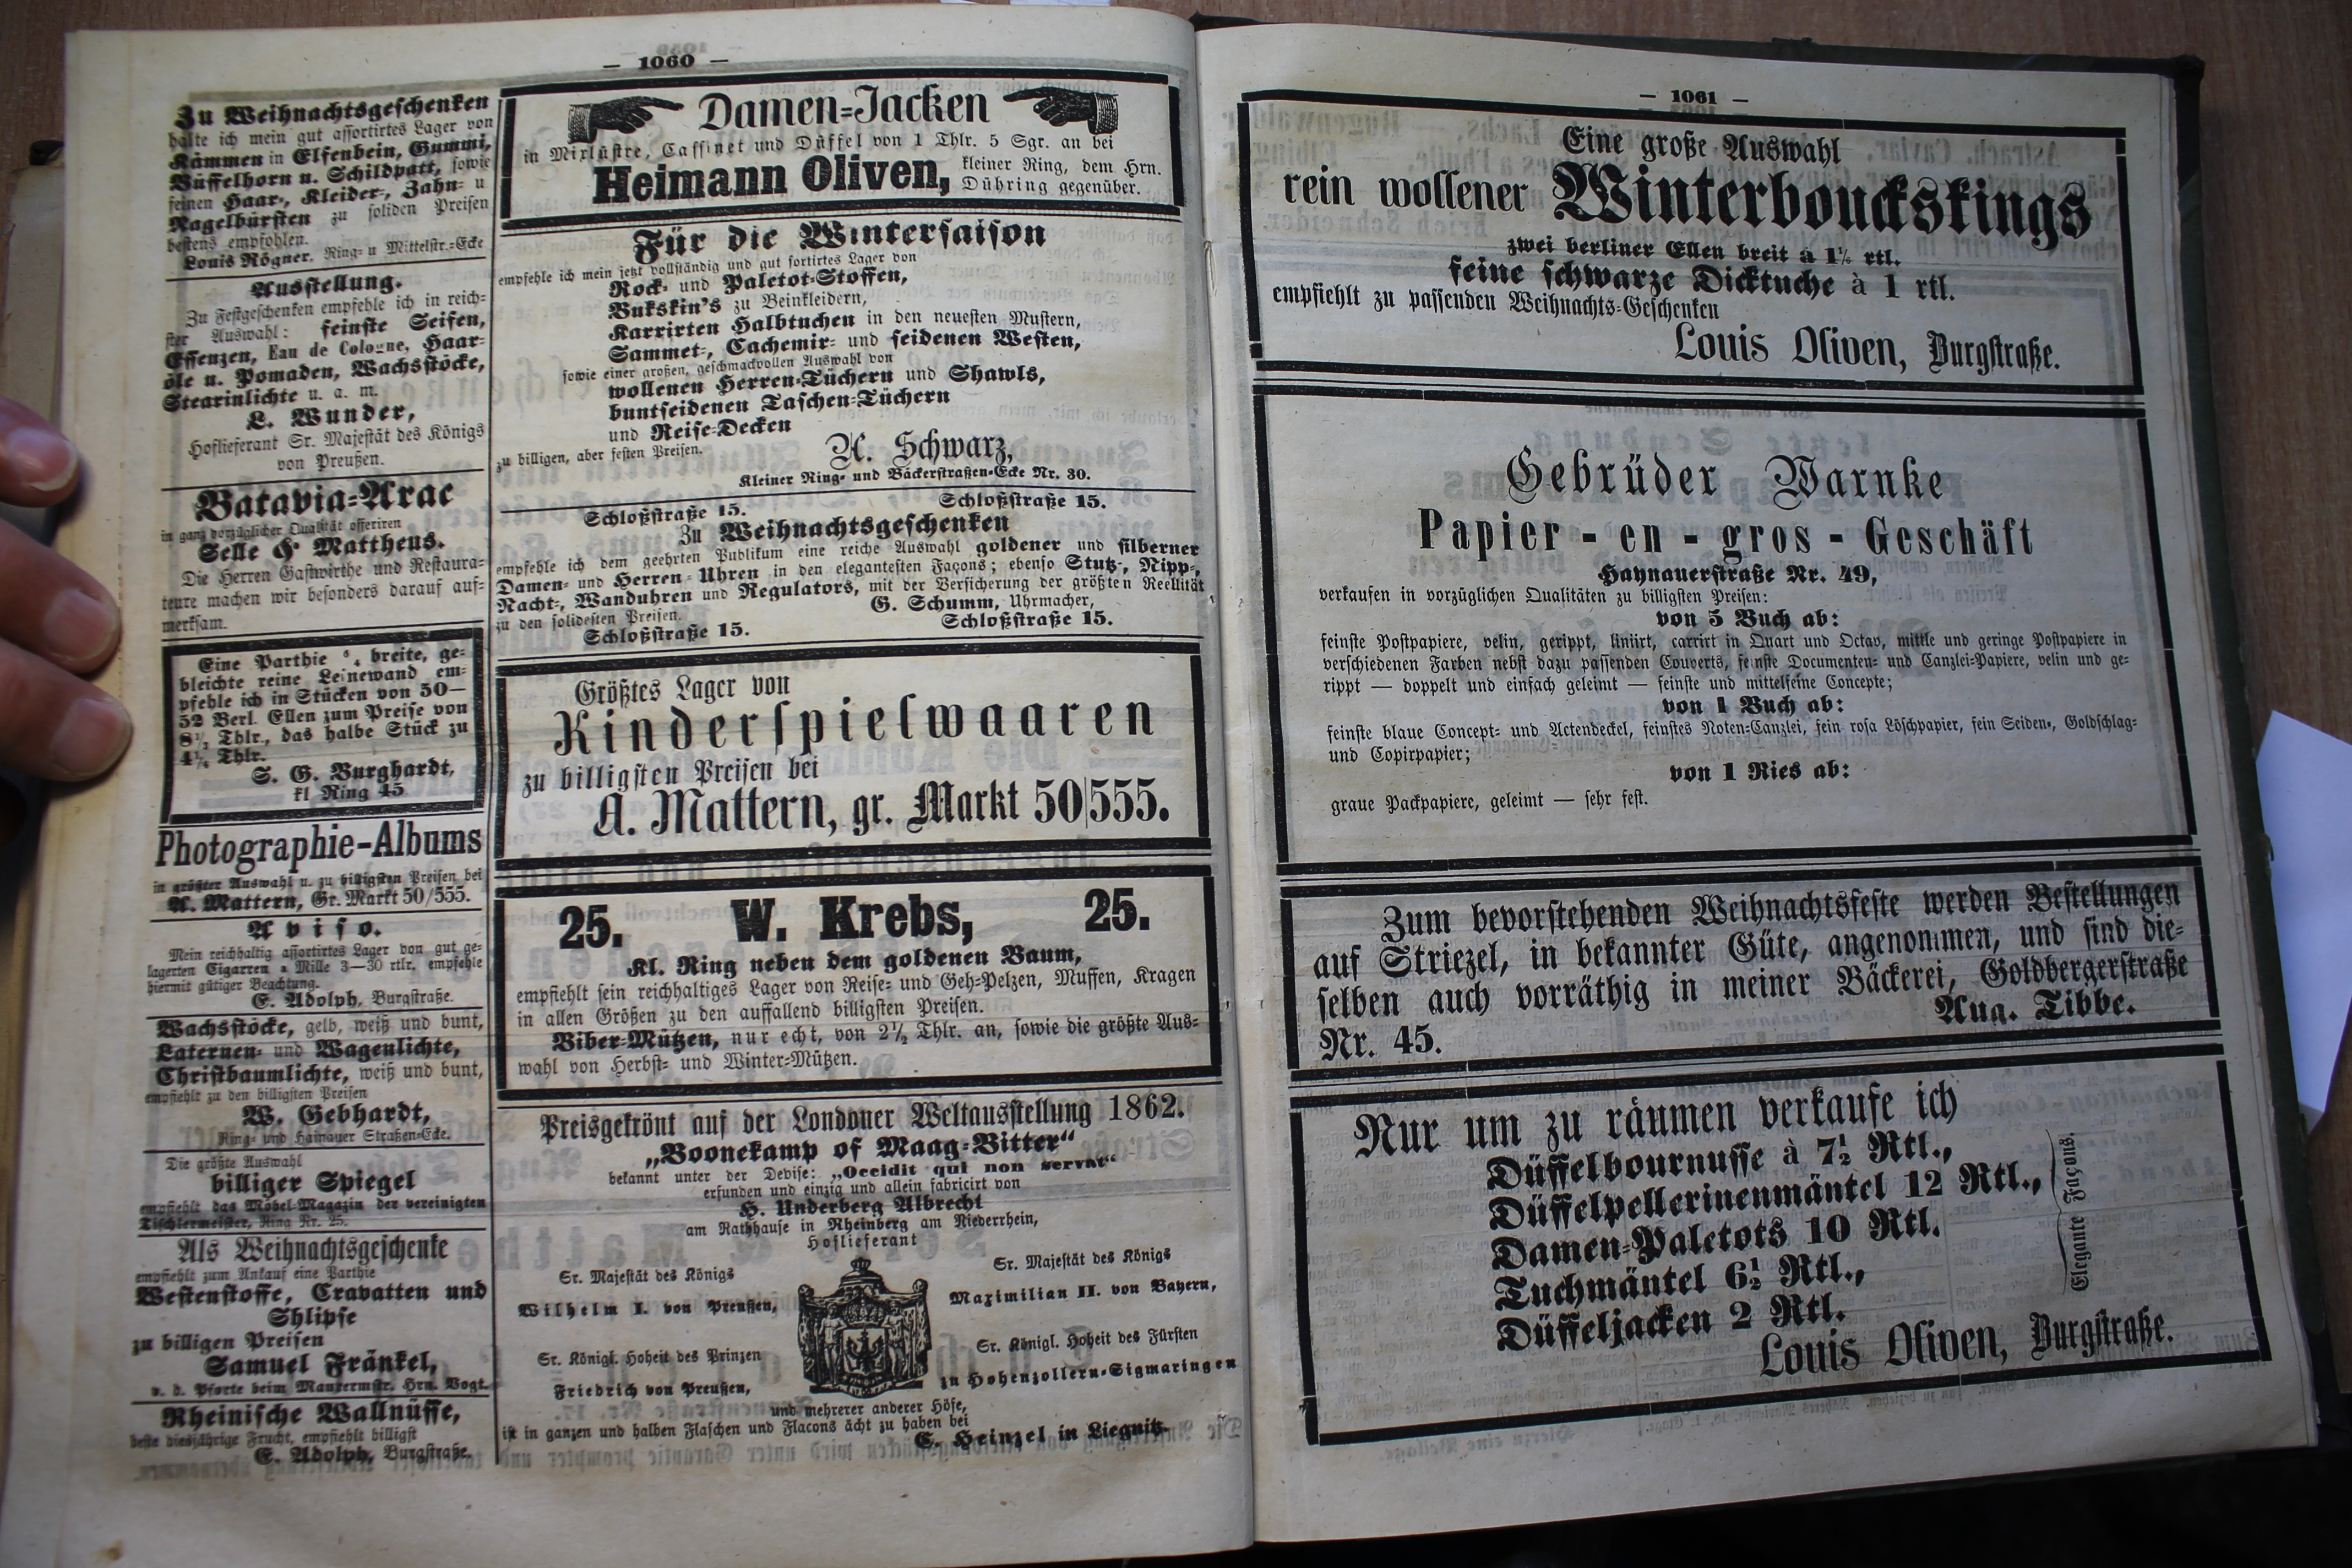 — 1060 —
Zu Weihnachtsgeschenken
halte ich mein gut assortirtes Lager von
Kämmen in Elfenbein, Gummi,
Büffelhorn u. Schildpatt, sowie
feinen Haar-, Kleider-, Zahn- u
Nagelbürsten zu soliden Preisen
bestens empfohlen.
Louis Rögner, Ring- u Mittelstr.-Ecke
Ausstellung.
Zu Festgeschenken empfehle ich in reich-
ster Auswahl: feinste Seifen,
Essenzen, Eau de Cologne, Haar-
öle u. Pomaden, Wachsstöcke,
Stearinlichte u. a. m.
L. Wunder,
Hoflieferant Sr. Majestät des Königs
von Preußen.
Batavia-Arac
in ganz vorzüglicher Qualität offeriren
Selle & Mattheus.
Die Herren Gastwirthe und Restaura-
teure machen wir besonders darauf auf-
merksam.
Eine Parthie breite, ge-
bleichte reine Leinewand em-
pfehle ich in Stücken von 50—
52 Berl. Ellen zum Preise von
8½ Thlr., das halbe Stück zu
4¼ Thlr.
S. G. Burghardt,
kl Ring 45
Photographie-Albums
in größter Auswahl u. zu billigsten Preisen bei
A. Mattern, Gr. Markt 50/555.
Aviso.
Mein reichhaltig assortirtes Lager von gut ge-
lagerten Cigarren a Mille 3—30 rtlr. empfehle
hiermit gütiger Beachtung.
E. Adolph, Burgstraße.
Wachsstöcke, gelb, weiß und bunt,
Laternen- und Wagenlichte,
Christbaumlichte, weiß und bunt,
empfiehlt zu den billigsten Preisen
W. Gebhardt,
Ring- und Hainauer Straßen-Ecke.
Die größte Auswahl
billiger Spiegel
empfiehlt das Möbel-Magazin der vereinigten
Tischlermeister, Ring Nr. 25.
Als Weihnachtsgeschenke
empfiehlt zum Ankauf eine Parthie
Westenstoffe, Cravatten und
Shlipse
zu billigen Preisen
Samuel Fränkel,
v. d. Pforte beim Maurermstr. Hrn. Vogt.
Rheinische Wallnüsse,
beste diesjährige Frucht, empfiehlt billigst
E. Adolph, Burgstraße.
Damen-Jacken
in Mixlüstre, Cassinet und Düffel von 1 Thlr. 5 Sgr. an bei
Heimann Oliven, kleiner Ring, dem Hrn.
Dühring gegenüber.
Für die Wintersaison
empfehle ich mein jetzt vollständig und gut sortirtes Lager von
Rock- und Paletot-Stoffen,
Bukskin's zu Beinkleidern,
Karrirten Halbtuchen in den neuesten Mustern,
Sammet-, Cachemir- und seidenen Westen,
sowie einer großen, geschmackvollen Auswahl von
wollenen Herren-Tüchern und Shawls,
buntseidenen Taschen-Tüchern
und Reise-Decken
zu billigen, aber festen Preisen.
A. Schwarz,
Kleiner Ring- und Bäckerstraßen-Ecke Nr. 30.
Schloßstraße 15. Schloßstraße 15.
Zu Weihnachtsgeschenken
empfehle ich dem geehrten Publikum eine reiche Auswahl goldener und silberner
Damen- und Herren-Uhren in den elegantesten Façons; ebenso Stutz-, Nipp-,
Nacht-, Wanduhren und Regulators, mit der Versicherung der größten Reellität
zu den solidesten Preisen.
G. Schumm, Uhrmacher,
Schloßstraße 15. Schloßstraße 15.
Größtes Lager von
Kinderspielwaaren
zu billigsten Preisen bei
A. Mattern, gr. Markt 50|555.
25. W. Krebs, 25.
Kl. Ring neben dem goldenen Baum,
empfiehlt sein reichhaltiges Lager von Reise- und Geh-Pelzen, Muffen, Kragen
in allen Größen zu den auffallend billigsten Preisen.
Biber-Mützen, nur echt, von 2½ Thlr. an, sowie die größte Aus-
wahl von Herbst- und Winter-Mützen.
Preisgekrönt auf der Londoner Weltausstellung 1862.
„Boonekamp of Maag-Bitter“
bekannt unter der Devise: „Occidit qui non servat“
erfunden und einzig und allein fabricirt von
H. Underberg Albrecht
am Rathhause in Rheinberg am Niederrhein,
Hoflieferant
Sr. Majestät des Königs
Wilhelm I. von Preußen,
Sr. Königl. Hoheit des Prinzen
Friedrich von Preußen,
Sr. Majestät des Königs
Maximilian II. von Bayern,
Sr. Königl. Hoheit des Fürsten
zu Hohenzollern-Sigmaringen
und mehrerer anderer Höfe,
ist in ganzen und halben Flaschen und Flacons ächt zu haben bei
E. Heinzel in Liegnitz.
— 1061 —
Eine große Auswahl
rein wollener Winterbouckskings
zwei berliner Ellen breit à 1½ rtl.
feine schwarze Dicktuche à 1 rtl.
empfiehlt zu passenden Weihnachts-Geschenken
Louis Oliven, Burgstraße.
Gebrüder Warnke
Papier-en-gros-Geschäft
Haynauerstraße Nr. 49,
verkaufen in vorzüglichen Qualitäten zu billigsten Preisen:
von 5 Buch ab:
feinste Postpapiere, velin, gerippt, liniirt, carrirt in Quart und Octav, mittle und geringe Postpapiere in
verschiedenen Farben nebst dazu passenden Couverts, feinste Documenten- und Canzlei-Papiere, velin und ge-
rippt — doppelt und einfach geleimt — feinste und mittelfeine Concepte;
von 1 Buch ab:
feinste blaue Concept- und Actendeckel, feinstes Noten-Canzlei, fein rosa Löschpapier, fein Seiden-, Goldschlag-
und Copirpapier;
von 1 Ries ab:
graue Packpapiere, geleimt — sehr fest.
Zum bevorstehenden Weihnachtsfeste werden Bestellungen
auf Striezel, in bekannter Güte, angenommen, und sind die-
selben auch vorräthig in meiner Bäckerei, Goldbergerstraße
Nr. 45. Aug. Tibbe.
Nur um zu räumen verkaufe ich
Düffelbournusse à 7½ Rtl.,
Düffelpellerinenmäntel 12 Rtl.,
Damen-Paletots 10 Rtl.
Tuchmäntel 6½ Rtl.,
Düffeljacken 2 Rtl.
Elegante Façons.
Louis Oliven, Burgstraße.